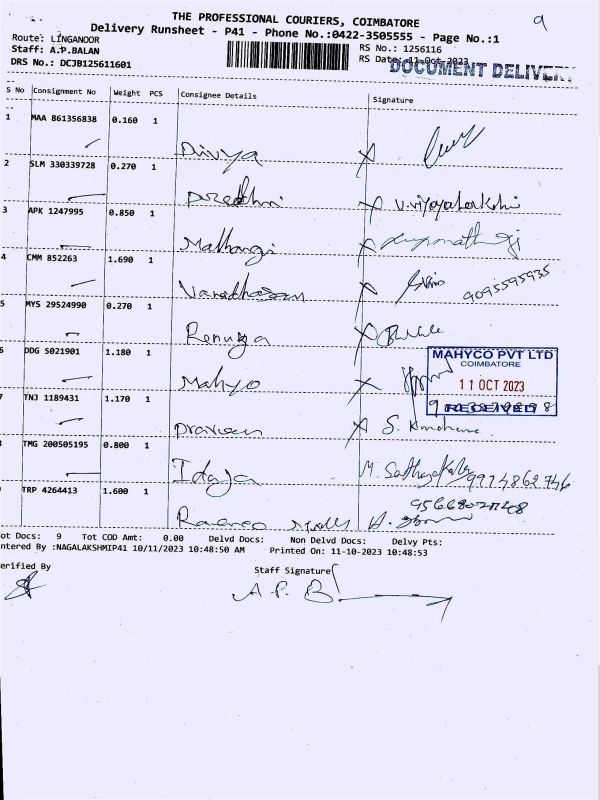 THE PROFESSIONAL COURIERS, COIMBATORE
9
Delivery Runsheet - P41 - Phone No.:0422-3505555 - Page No.:1
Route: LINGANOOR
RS No.: 1256116
Staff: A.P.BALAN
RS Date: 11-Oct-2023
DRS No.: DCJB125611601
DOCUMENT DELIVER
S No Consignment No Weight PCS Consignee Details Signature
1 MAA 861356838 0.160 1
Divya X
2 SLM 330339728 0.270 1
Preethi X V.vijayalakshi
3 APK 1247995 0.850 1
Mathangi X
4 CMM 852263 1.690 1
Varadhasan X 9095595935
5 MYS 29524990 0.270 1
Renuga X
6 DDG 5021901 1.180 1
MAHYCO PVT LTD
COIMBATORE
Mahyo X
11 OCT 2023
7 TNJ 1189431 1.170 1
RECEIVED
Praveen X S.
TMG 200505195 0.800 1
Idaya M. 9974862746
TRP 4264413 1.600 1
ot Docs: 9 Tot COD Amt: 0.00 Delvd Docs: Non Delvd Docs: Delvy Pts:
ntered By :NAGALAKSHMIP41 10/11/2023 10:48:50 AM Printed On: 11-10-2023 10:48:53
erified By Staff Signature
A.P. B